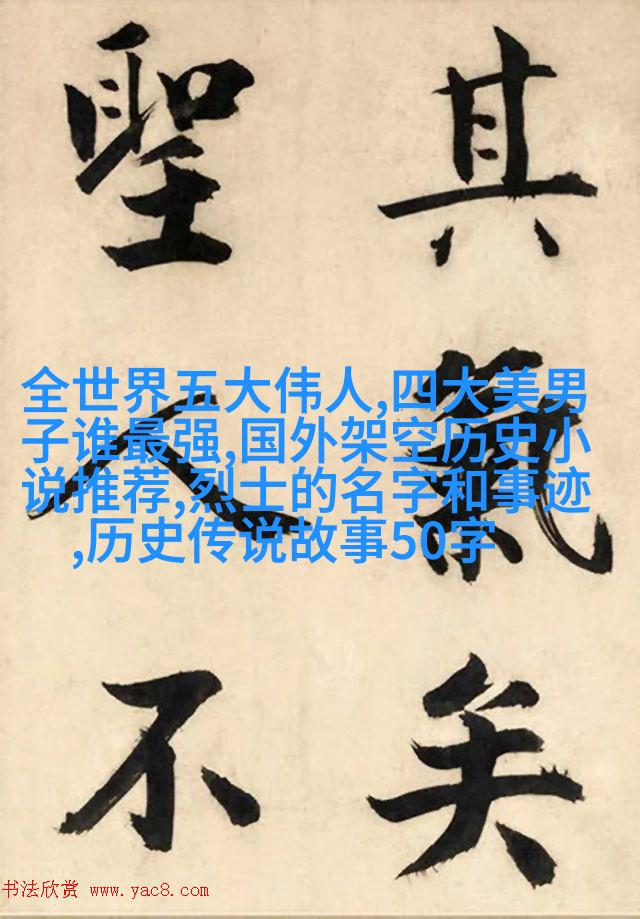 其氣矣
聖人不
全世界五大伟人,四大美男
子谁最强,国外架空历史小
说推荐,烈士的名字和事迹
,历史传说故事50字
书法欣赏 www.yac8.com